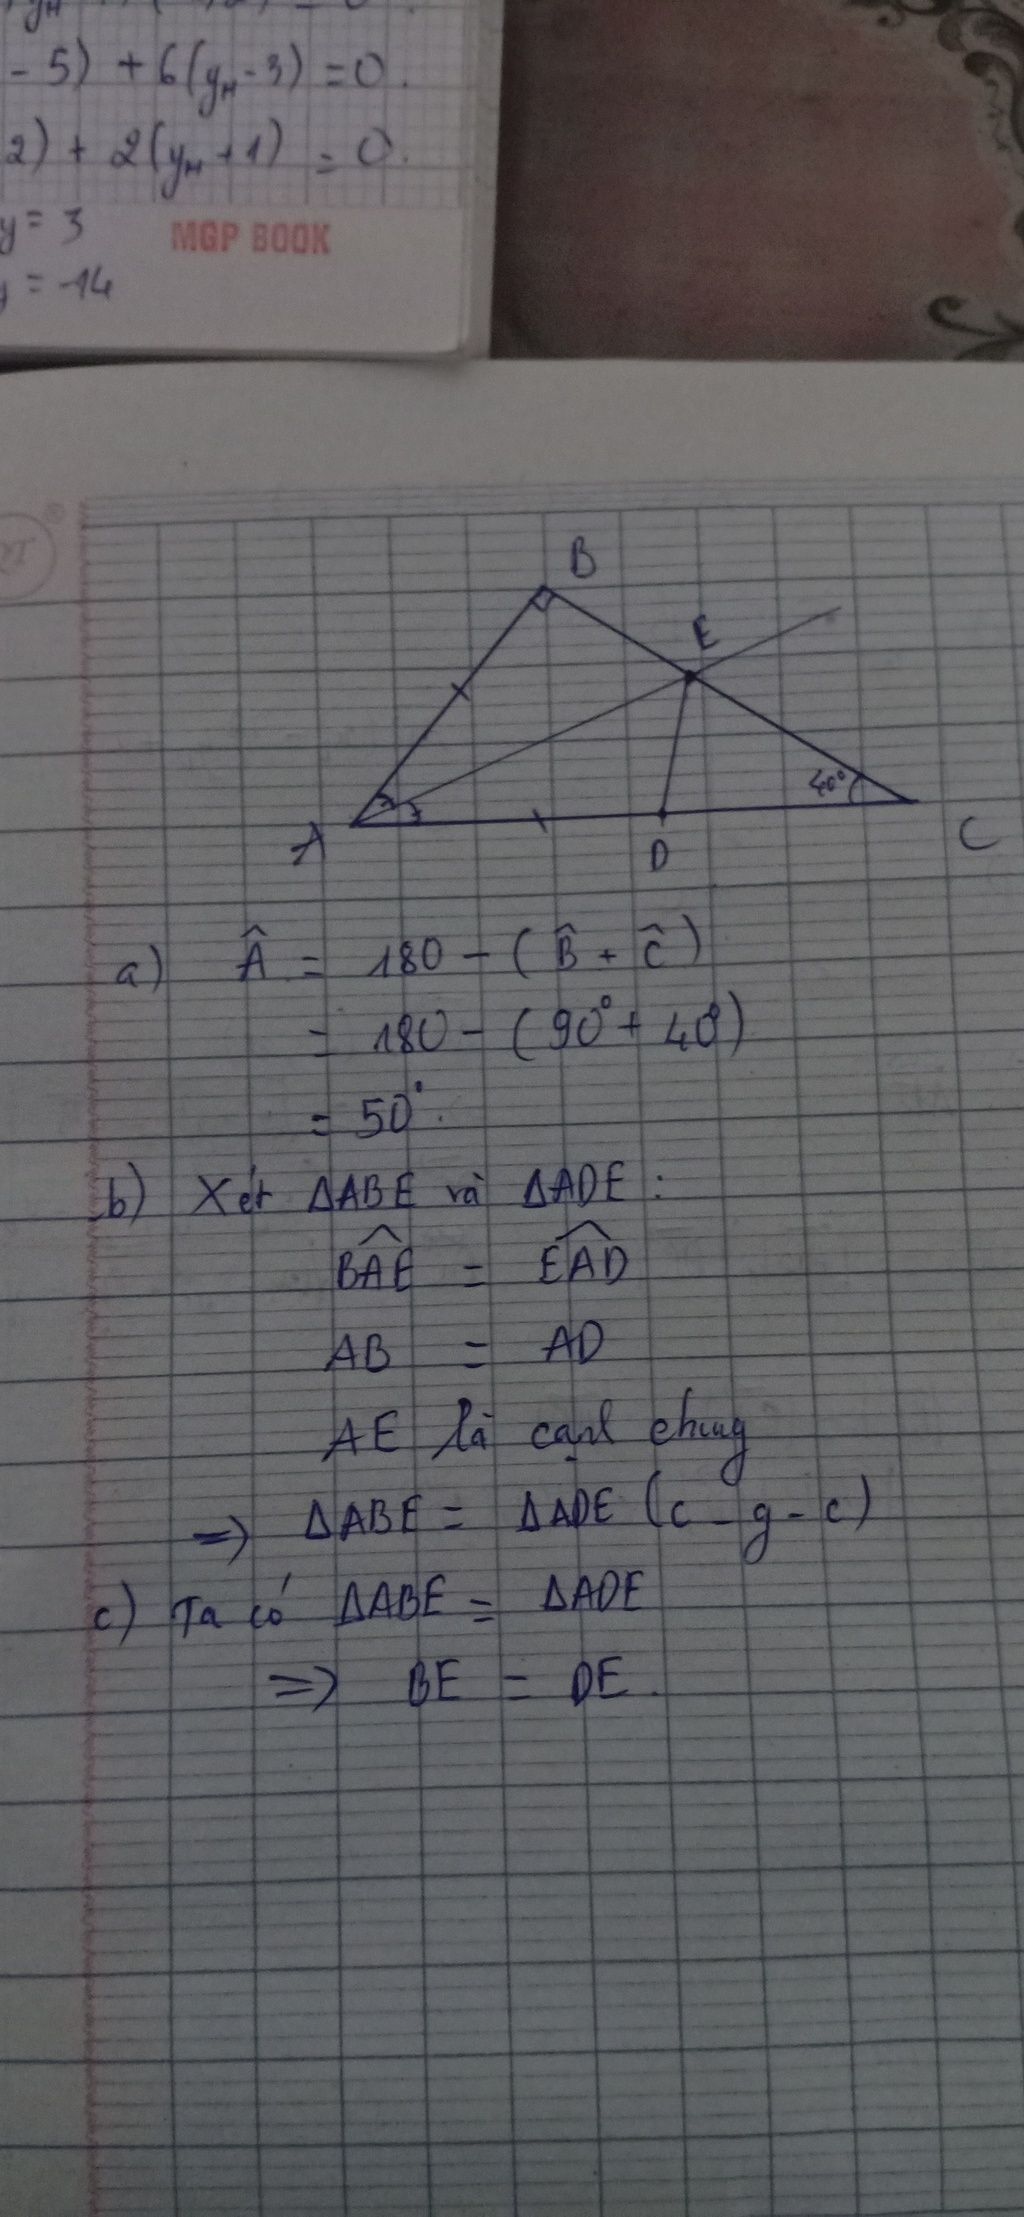 - 5) + 6(yₙ - 3) = 0.
2) + 2(yₙ + 1) = 0.
y = 3
= -14
MGP BOOK
B
E
40°
A
D
C
a) Â = 180 - (B̂ + Ĉ)
= 180 - (90° + 40°)
= 50°.
b) Xét ΔABE và ΔADE :
BÂE = EÂD
AB = AD
AE là cạnh chung
=> ΔABE = ΔADE (c - g - c)
c) Ta có ΔABE = ΔADE
=> BE = DE.